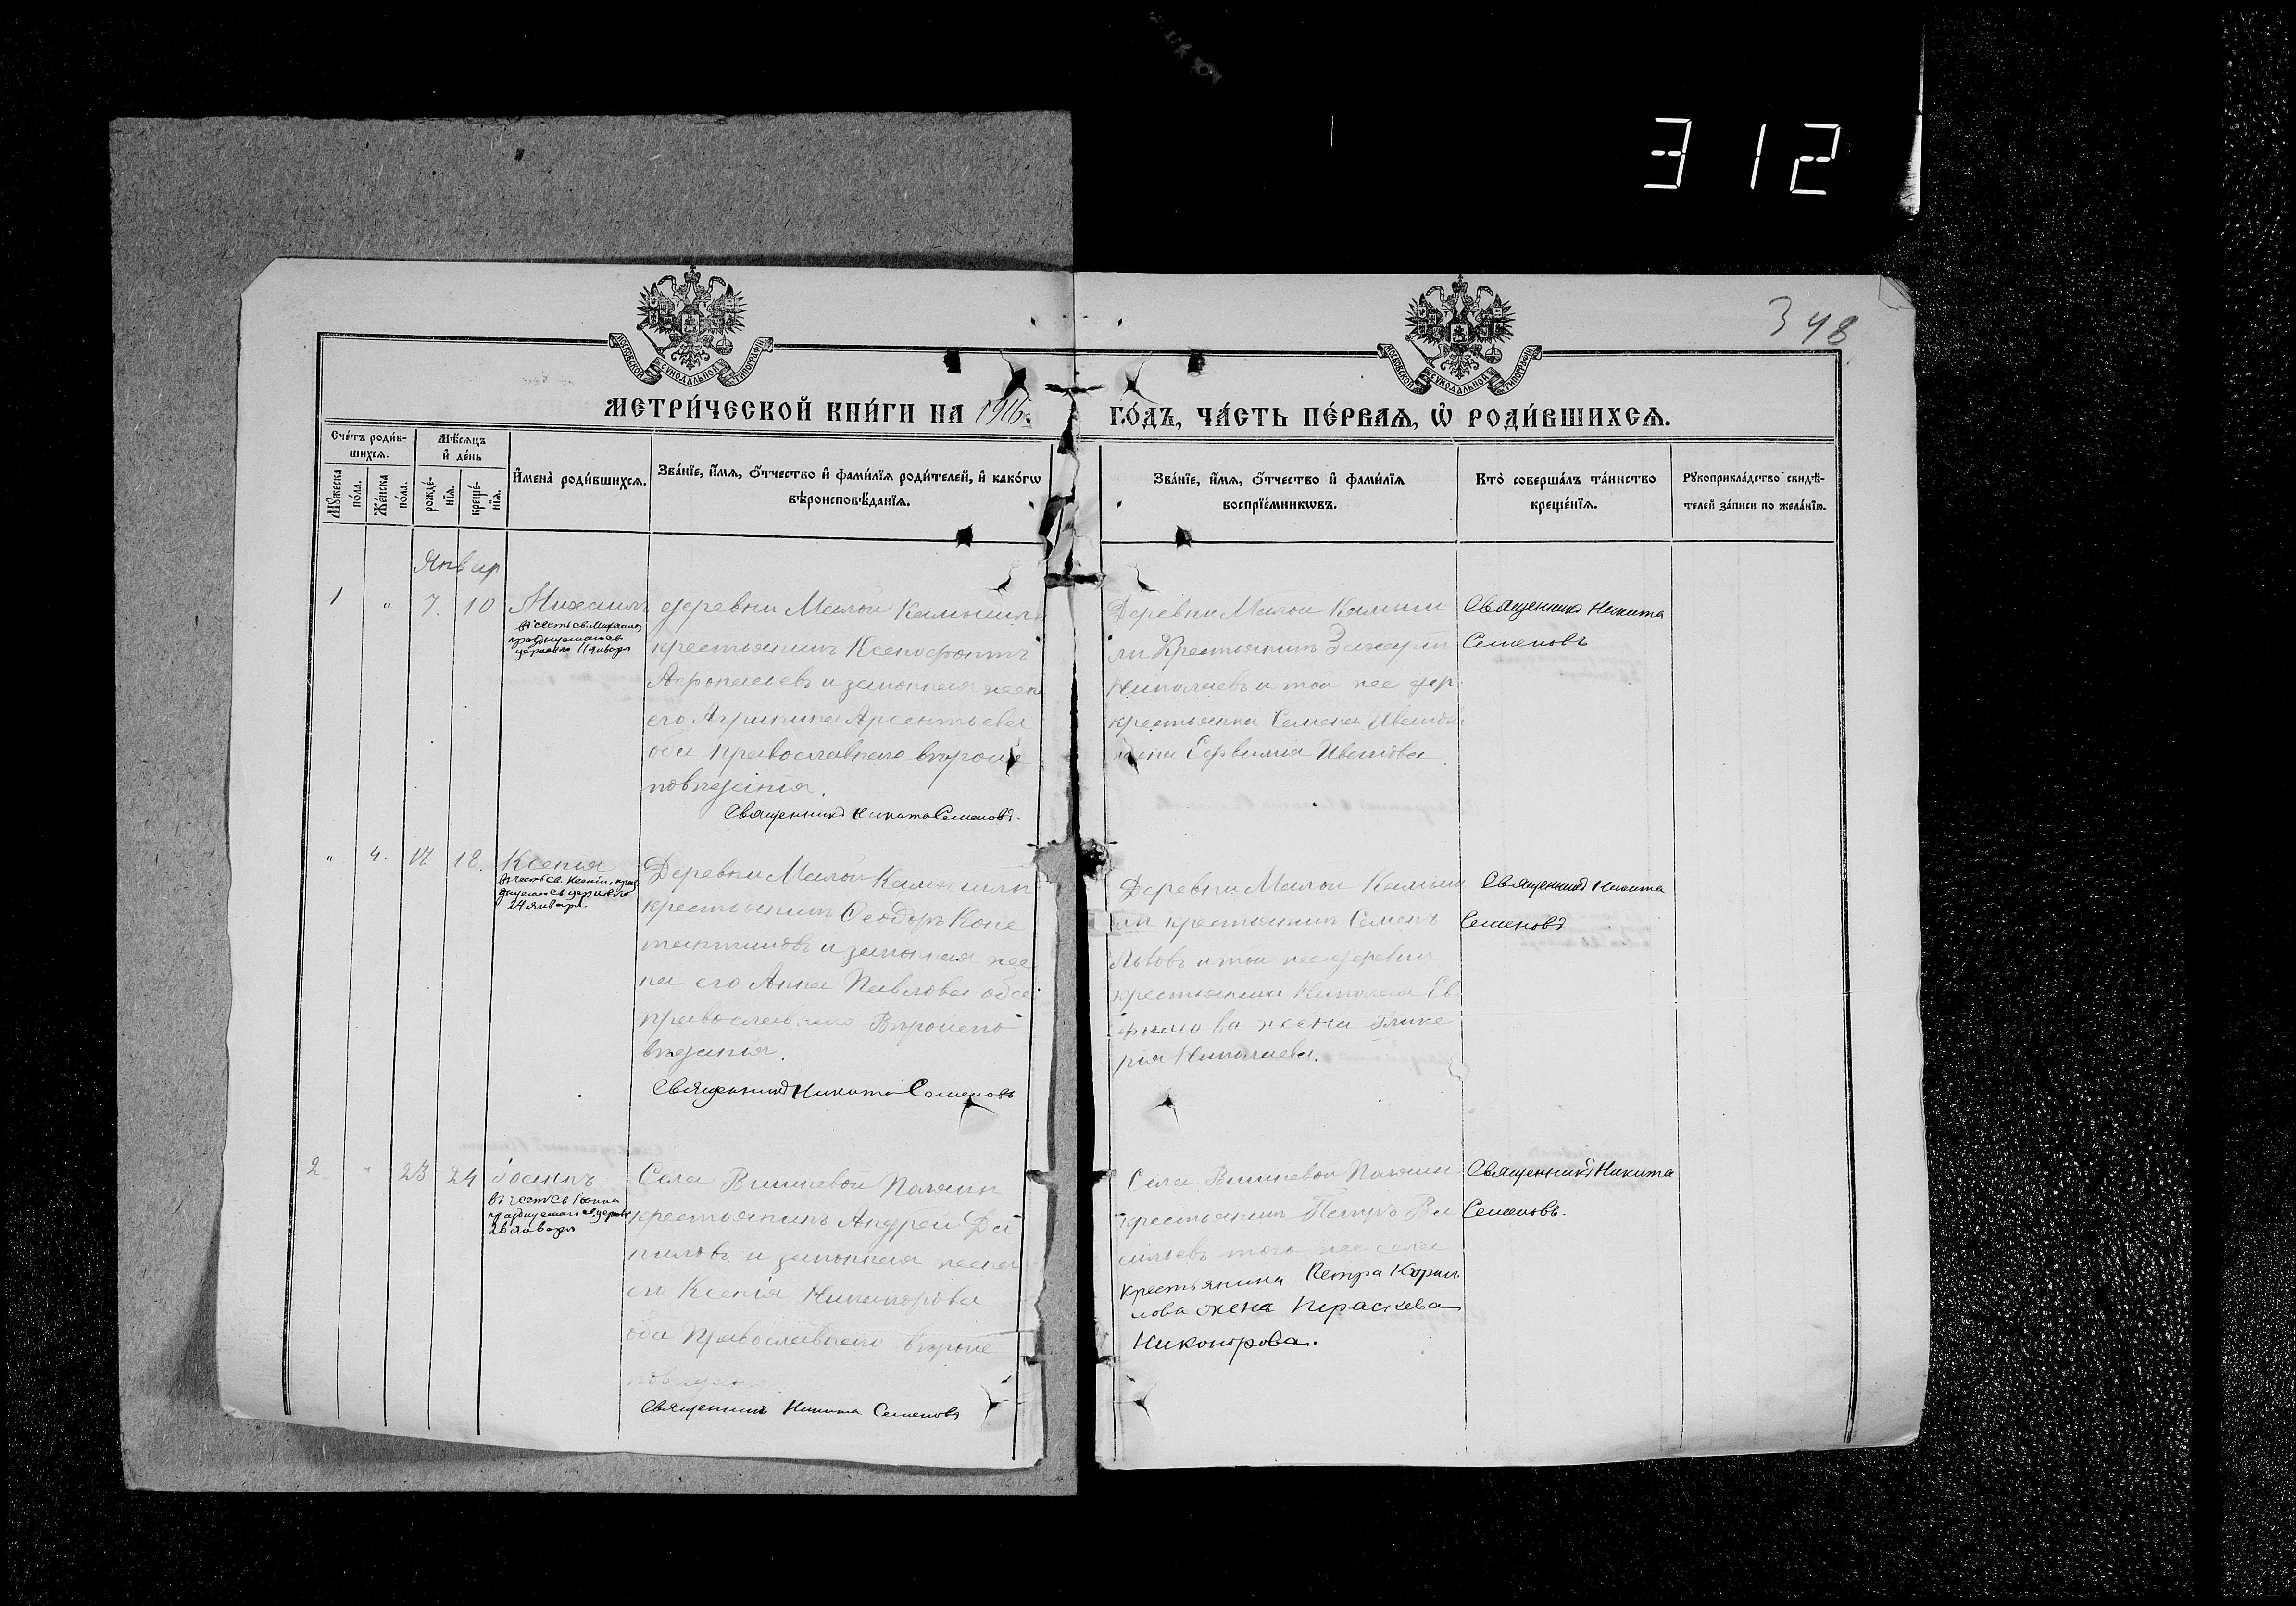 312
348
МОСКОВСКОЙ СУНОДАЛЬНОЙ ТИПОГРАФІИ
МОСКОВСКОЙ СУНОДАЛЬНОЙ ТИПОГРАФІИ
МЕТРИ́ЧЕСКОЙ КНИ́ГИ НА 1916 г. ГО́ДЪ, ЧА́СТЬ ПЕ́РВАѦ, Ѡ҆ РОДИ́ВШИХСѦ.
Сче́тъ роди́в-
шихсѧ.
Мꙋ́жеска
по́ла.
Же́нска
по́ла.
Мѣ́сѧцъ
и҆ де́нь
рожде́-
нїѧ.
креще́-
нїѧ.
И҆мена̀ роди́вшихсѧ.
Зва́нїе, и҆́мѧ, ѻ҆́тчество и҆ фами́лїѧ роди́телей, и҆ како́гѡ
вѣроисповѣ́данїѧ.
Зва́нїе, и҆́мѧ, ѻ҆́тчество и҆ фами́лїѧ
воспрїе́мникѡвъ.
Кто̀ соверша́лъ та́инство
креще́нїѧ.
Рꙋкоприкла́дство свидѣ́-
телей за́писи по жела́нїю.
Январ
1 " 7. 10 Михаилъ
въ честь св. Михаила,
празднуемаго св.
церковію 11 января
деревни Малой Камышли
крестьянинъ Ксенофонтъ
и законная жена
его Агрипина Арсентьева
оба православнаго вѣроис
повѣданія.
Священникъ Никита Семеновъ.
Деревни Малой Камыш
ли Крестьянинъ Захарій
Николаевъ и той же дер.
крестьянина Семена Иванова
жена Евфимія Иванова.
Священникъ Никита
Семеновъ
" 4. 17 18. Ксенія
въ честь св. Ксеніи, праз
днуемой св церковію
24 января.
Деревни Малой Камышли
крестьянинъ Ѳеодоръ Конс
тантиновъ и законная же
на его Анна Павлова оба
православнаго Вѣроиспо
вѣданія.
Священникъ Никита Семеновъ
Деревни Малой Камыш
ли крестьянинъ Семенъ
Львовъ и той же деревни
крестьянина Николая Еф
фимова жена Глике
рія Николаева.
Священникъ Никита
Семеновъ
2 " 23 24 Іоаннъ
въ честь св Іоанна
празднуемаго св церков
26 января
Села Вишневой Поляны
крестьянинъ Андрей Да
ниловъ и законная жена
его Ксенія Никанорова
оба Православнаго вѣроис
повѣданія
Священникъ Никита Семеновъ
Села Вишневой Поляны
крестьянинъ Петръ Ва
сильевъ того же села
крестьянина Петра Кирил
лова жена Параскева
Никонорова.
Священникъ Никита
Семеновъ.